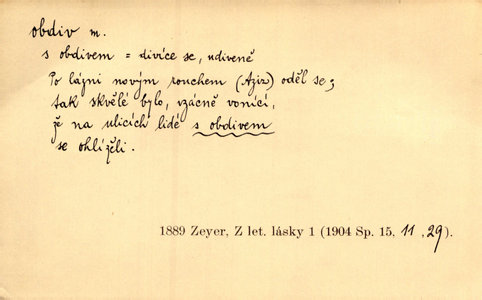 obdiv m.
s obdivem = divíce se, udiveně
Po lázni novým rouchem (Aziz) oděl se;
tak skvělé bylo, vzácně vonící,
že na ulicích lidé s obdivem
se ohlíželi.
1889 Zeyer, Z let. lásky 1 (1904 Sp. 15, 11, 29).